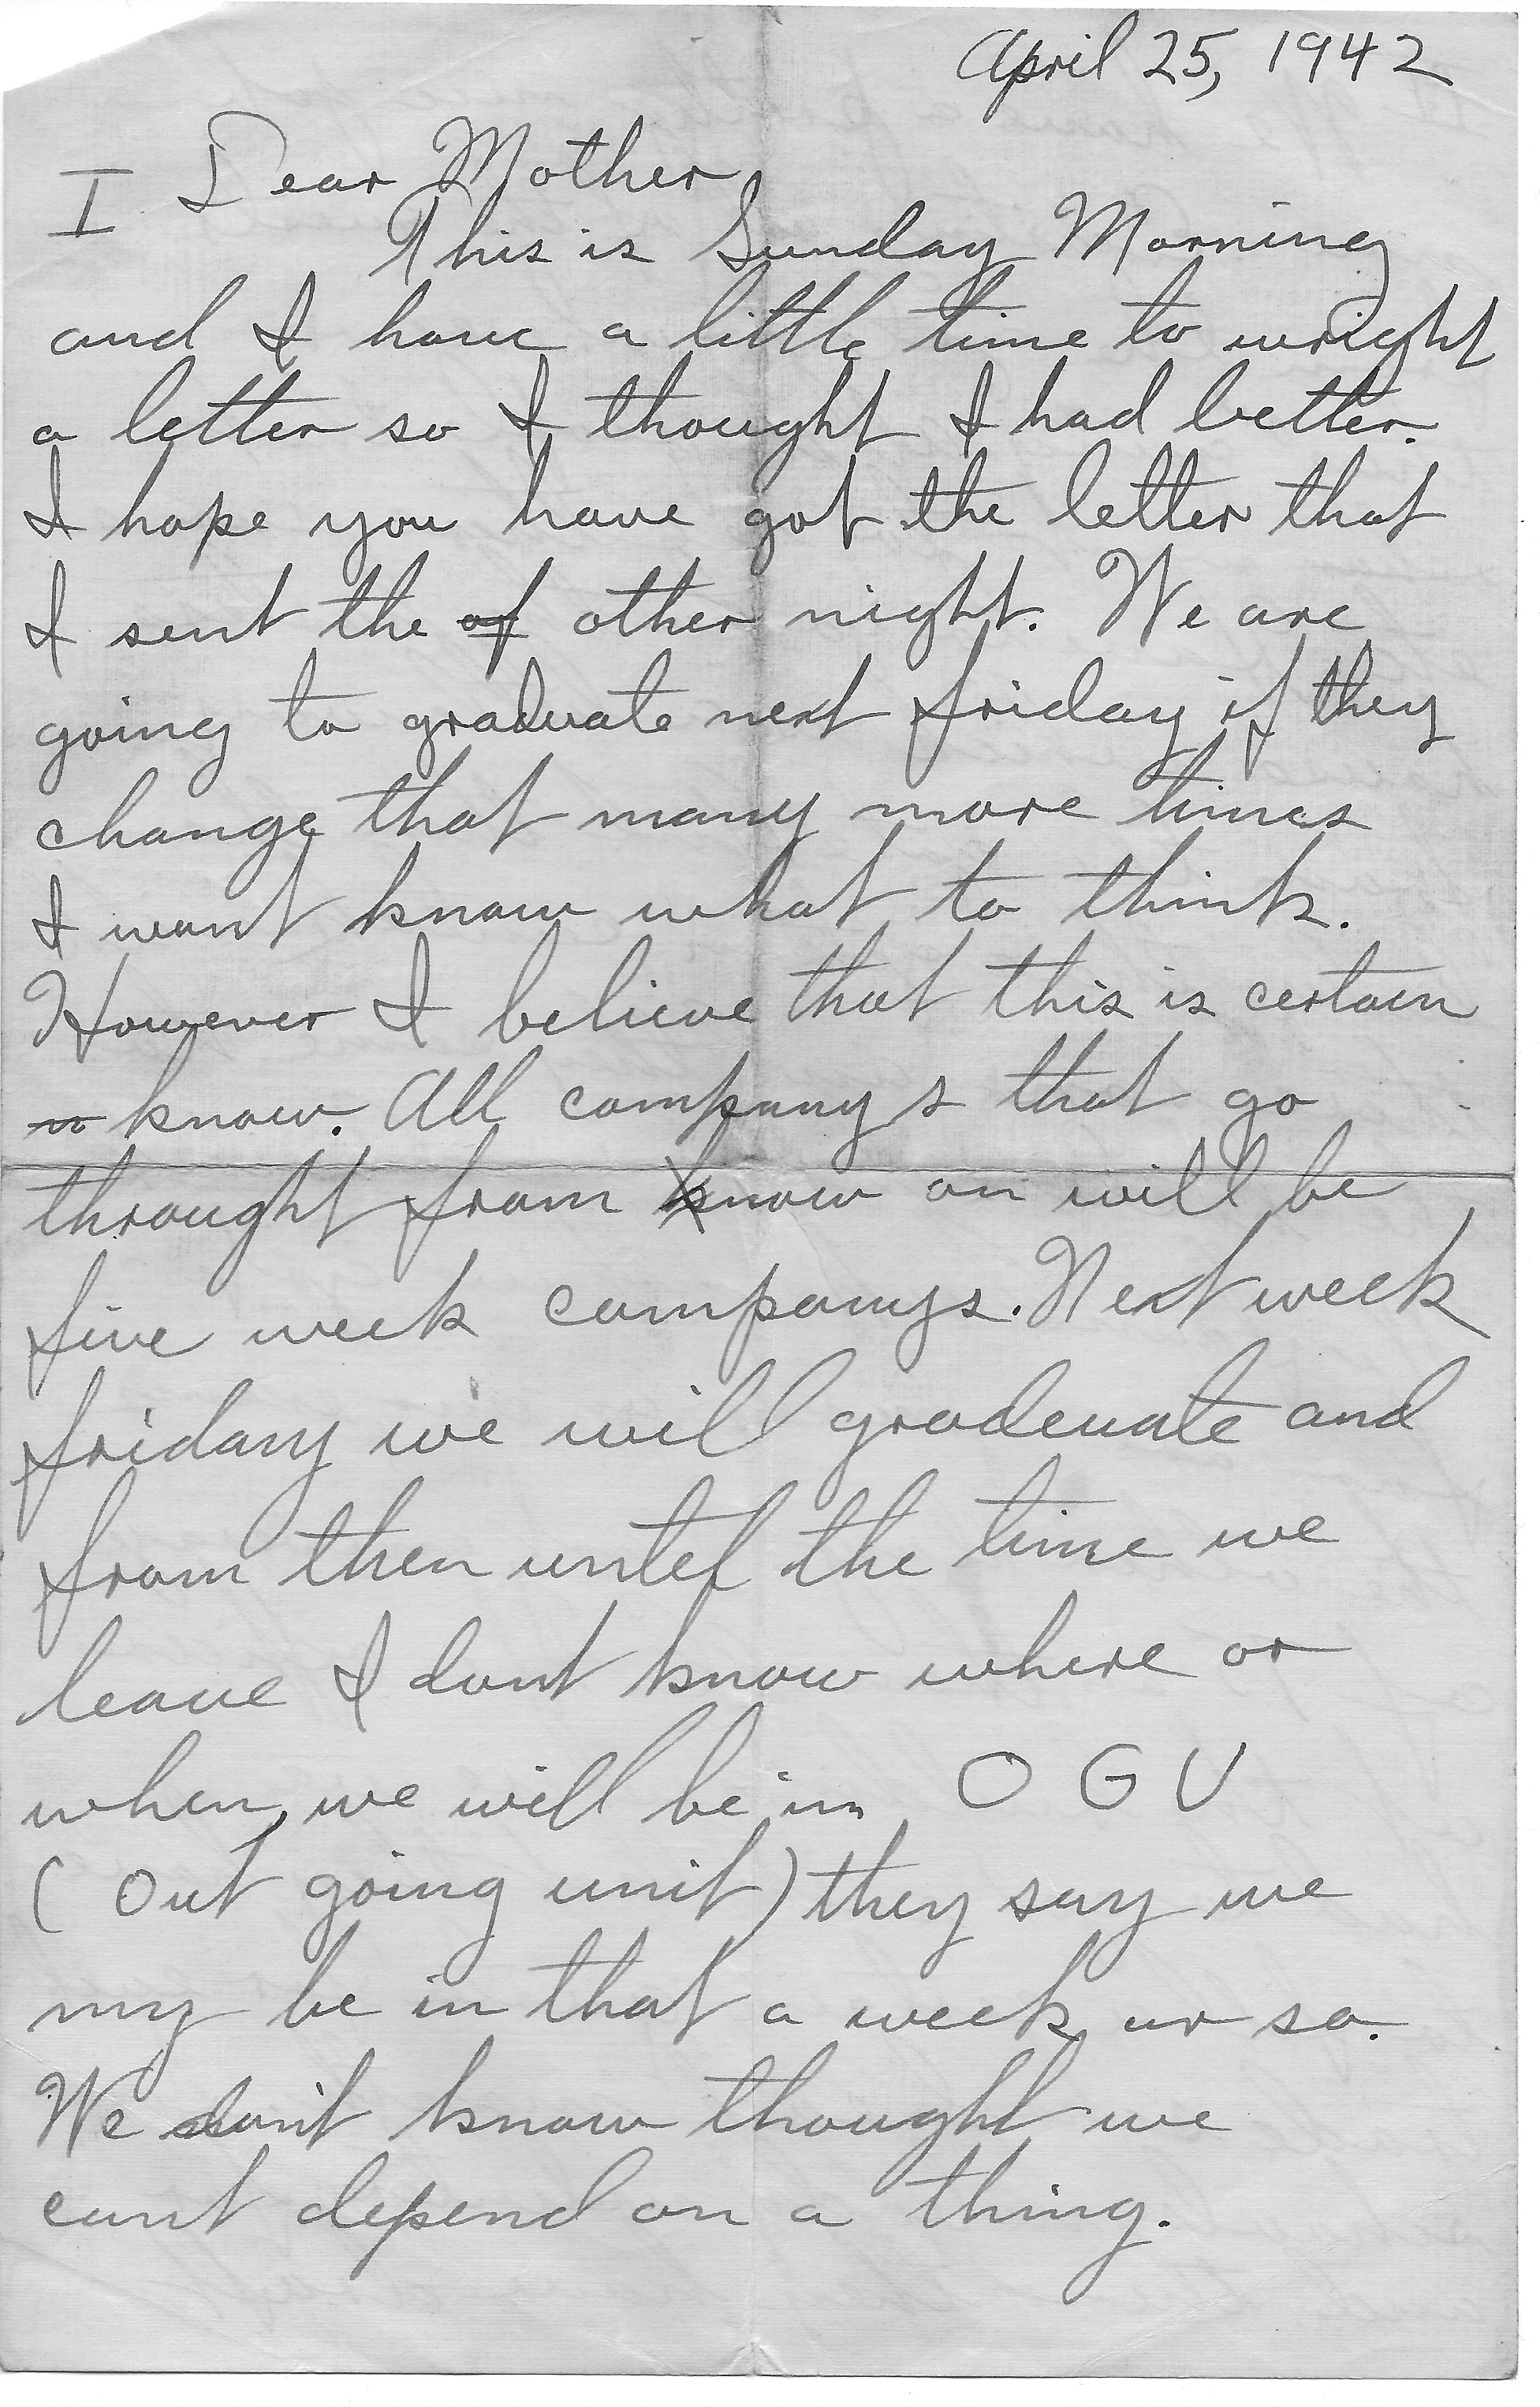 April 25, 1942
I Dear Mother
This is Sunday Morning
and I have a little time to wright
a letter so I thought I had better.
I hope you have got the letter that
I sent the of other night. We are
going to graduate next friday if they
change that many more times
I wont know what to think.
However I believe that this is certain
n know. All companys that go
throught from know on will be
five week companys. Next week
friday we will gradeuate and
from then untel the time we
leave I dont know where or
when we will be in O G U
(Out going unit) they say we
my be in that a week or so.
We don't know thought we
cant depend on a thing.